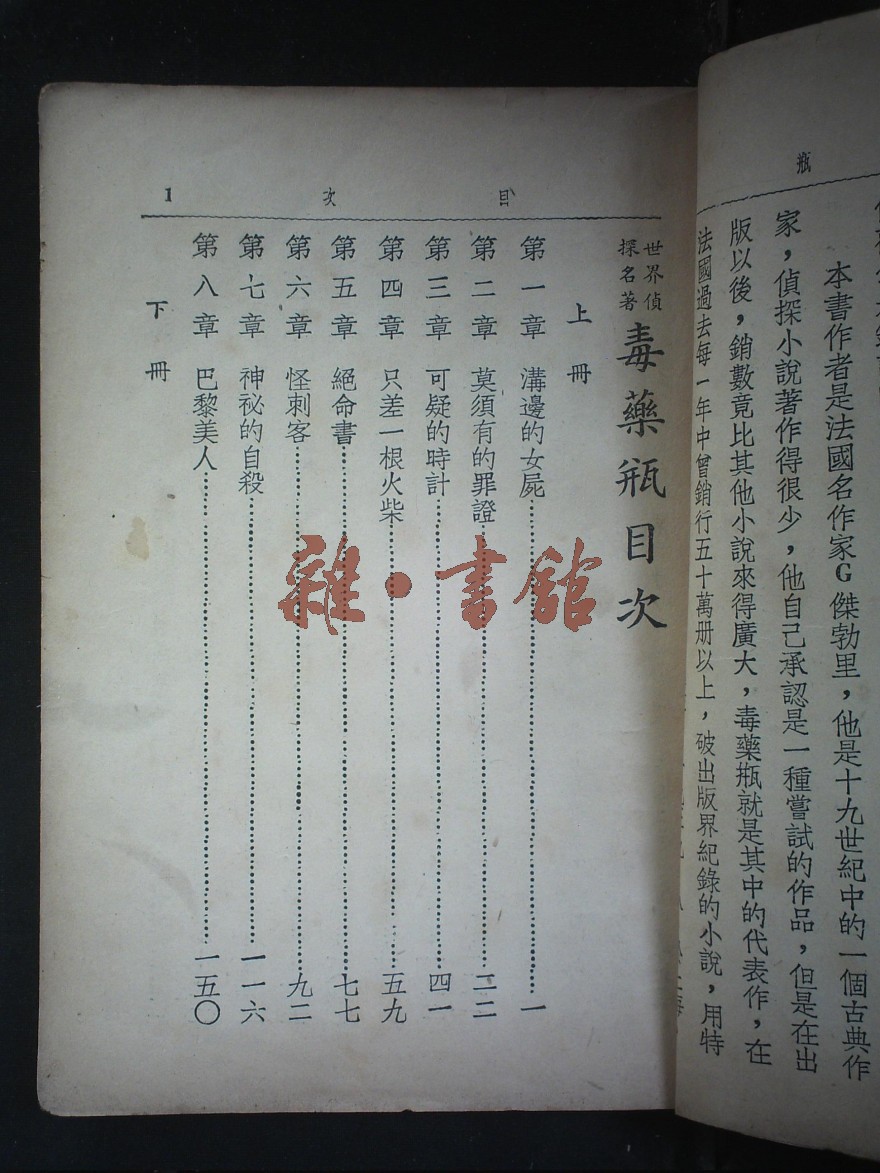 瓶
本書作者是法國名作家G傑勃里，他是十九世紀中的一個古典作
家，偵探小說著作得很少，他自己承認是一種嘗試的作品，但是在出
版以後，銷數竟比其他小說來得廣大，毒藥瓶就是其中的代表作，在
法國過去每一年中曾銷行五十萬册以上，破出版界紀錄的小說，用特
目次 1
世界偵探名著 毒藥瓶目次
上冊
第一章 溝邊的女屍 一
第二章 莫須有的罪證 二二
第三章 可疑的時計 四一
第四章 只差一根火柴 五九
第五章 絕命書 七七
第六章 怪刺客 九二
第七章 神祕的自殺 一一六
第八章 巴黎美人 一五〇
下冊
雜·書館